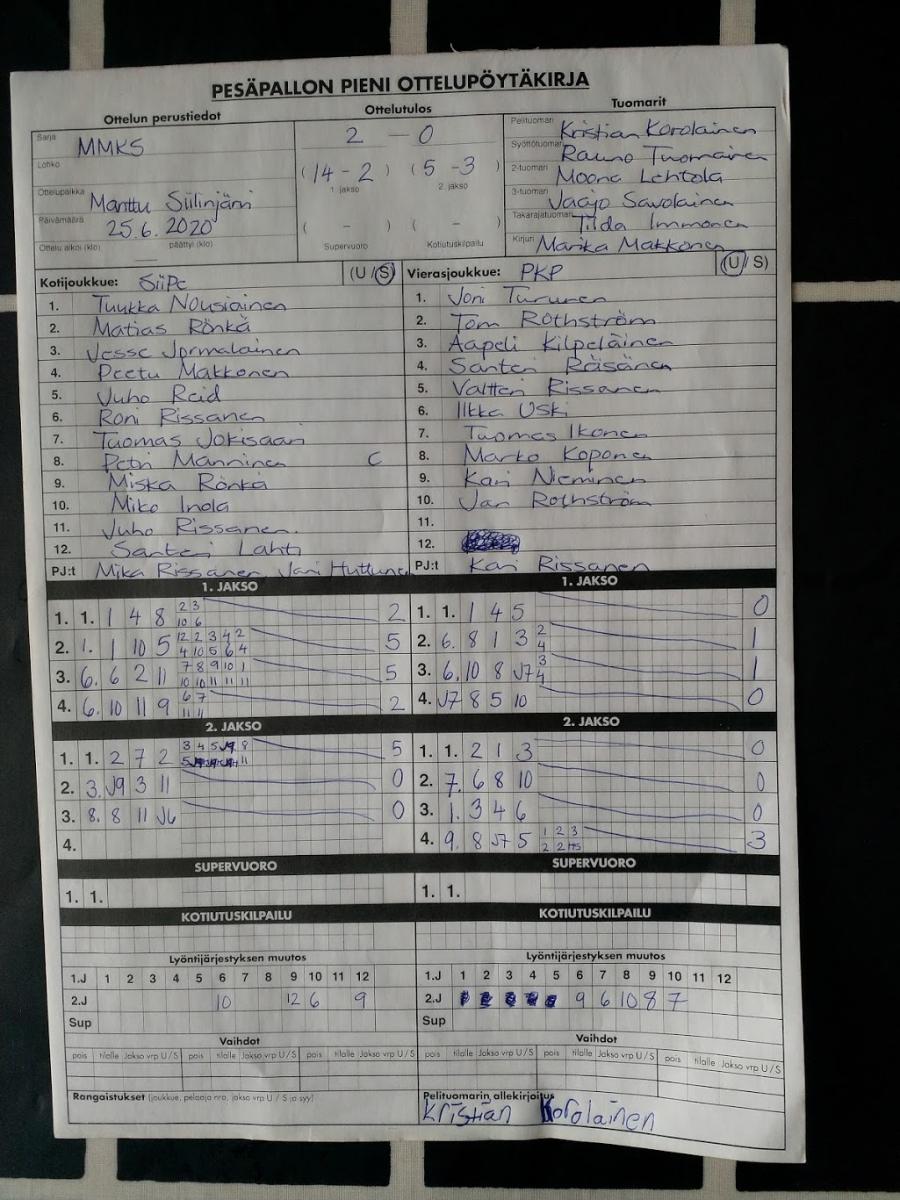 PESÄPALLON PIENI OTTELUPÖYTÄKIRJA
Ottelun perustiedot
Sarja MMKS
Lohko
Ottelupaikka Manttu Siilinjärvi
Päivämäärä 25.6.2020
Ottelu alkoi (klo) päättyi (klo)
Ottelutulos
2 – 0
(14 - 2) (5 - 3)
1. jakso 2. jakso
( - ) ( - )
Supervuoro Kotiutuskilpailu
Tuomarit
Pelituomari Kristian Korolainen
Syöttötuomari Rauno Tuomainen
2-tuomari Moona Lehtola
3-tuomari Jaajo Savolainen
Takarajatuomari Tilda Immonen
Kirjuri Marika Makkonen
Kotijoukkue: SiiPe (U/S)
1. Tuukka Nousiainen
2. Matias Rönkä
3. Jesse Jormalainen
4. Peetu Makkonen
5. Juho Reid
6. Roni Rissanen
7. Tuomas Jokisaari
8. Petri Manninen C
9. Miska Rönkä
10. Miko Inola
11. Juho Rissanen
12. Santeri Lahti
PJ:t Mika Rissanen Jari Huttunen
Vierasjoukkue: PKP (U/S)
1. Joni Turunen
2. Tom Rothström
3. Aapeli Kilpeläinen
4. Santeri Räisänen
5. Valtteri Rissanen
6. Ilkka Uski
7. Tuomas Ikonen
8. Marko Koponen
9. Kari Nieminen
10. Jan Rothström
11.
12.
PJ:t Kari Rissanen
1. JAKSO
1. 1. 1 4 8 2 3 2
10 6
2. 1. 1 10 5 12 2 3 4 2 5
4 10 5 6 4
3. 6. 6 2 11 7 8 9 10 1 5
10 10 11 11 11
4. 6. 10 11 9 6 7 2
11 11
2. JAKSO
1. 1. 2 7 2 3 4 5 J9 8 5
2. 3. J9 3 11 0
3. 8. 8 11 J6 0
4.
SUPERVUORO
1. 1.
KOTIUTUSKILPAILU
Lyöntijärjestyksen muutos
1.J 1 2 3 4 5 6 7 8 9 10 11 12
2.J 10 12 6 9
Sup
Vaihdot
pois tilalle Jakso vrp U/S pois tilalle Jakso vrp U/S pois tilalle Jakso vrp U/S
Rangaistukset (joukkue, pelaaja nro, jakso vrp U / S ja syy)
1. JAKSO
1. 1. 1 4 5 0
2. 6. 8 1 3 2 1
4
3. 6. 10 8 J7 3 1
4
4. J7 8 5 10 0
2. JAKSO
1. 1. 2 1 3 0
2. 7. 6 8 10 0
3. 1. 3 4 6 0
4. 9. 8 J7 5 1 2 3 3
2 2
SUPERVUORO
1. 1.
KOTIUTUSKILPAILU
Lyöntijärjestyksen muutos
1.J 1 2 3 4 5 6 7 8 9 10 11 12
2.J 9 6 10 8 7
Sup
Vaihdot
pois tilalle Jakso vrp U/S pois tilalle Jakso vrp U/S pois tilalle Jakso vrp U/S
Pelituomarin allekirjoitus
Kristian Korolainen